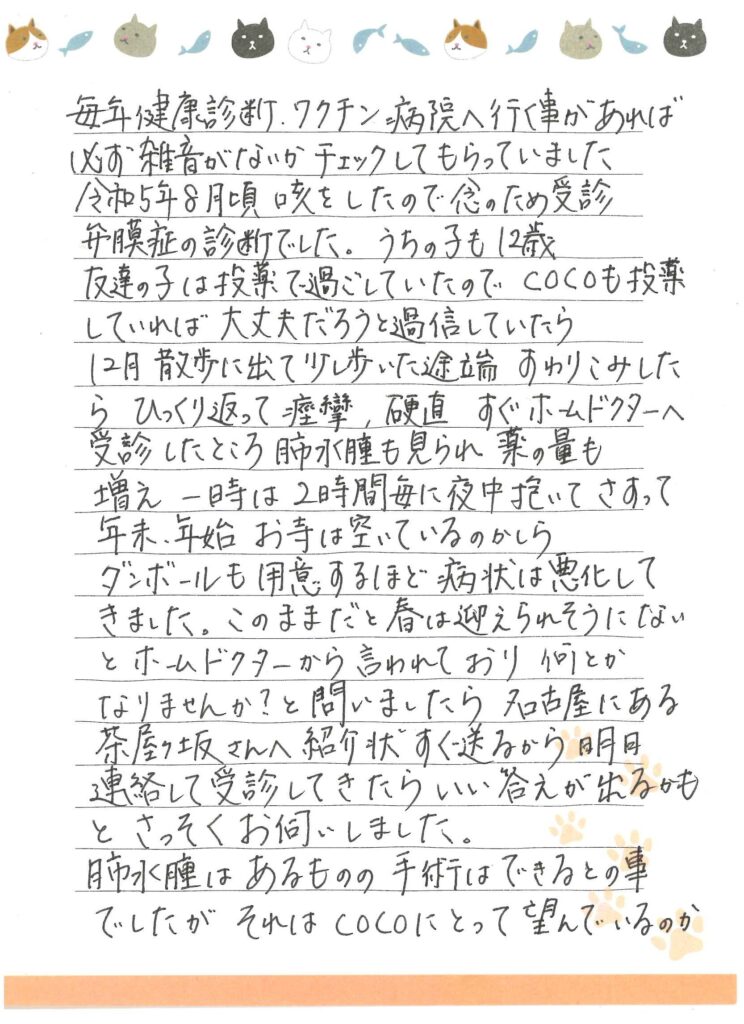 毎年健康診断.ワクチン病院へ行く事があれば
必ず雑音がないかチェックしてもらっていました
令和5年8月頃 咳をしたので念のため受診
弁膜症の診断でした。うちの子も12歳
友達の子は投薬で過ごしていたので COCOも投薬
していれば 大丈夫だろうと過信していたら
12月 散歩に出て少し歩いた途端 すわりこみした
ら ひっくり返って 痙攣,硬直 すぐホームドクターへ
受診したところ 肺水腫も見られ 薬の量も
増え 一時は 2時間毎に夜中抱いて さすって
年末、年始 お寺は空いているのかしら
ダンボールも用意するほど 病状は悪化して
きました。このままだと春は迎えられそうにない
とホームドクターから言われており 何とか
なりませんか?と問いましたら 名古屋にある
茶屋ヶ坂さんへ紹介状すぐ送るから 明日
連絡して受診してきたら いい答えが出るかも
と さっそくお伺いしました。
肺水腫は あるものの 手術はできるとの事
でしたが それは COCOにとって望んでいるのか